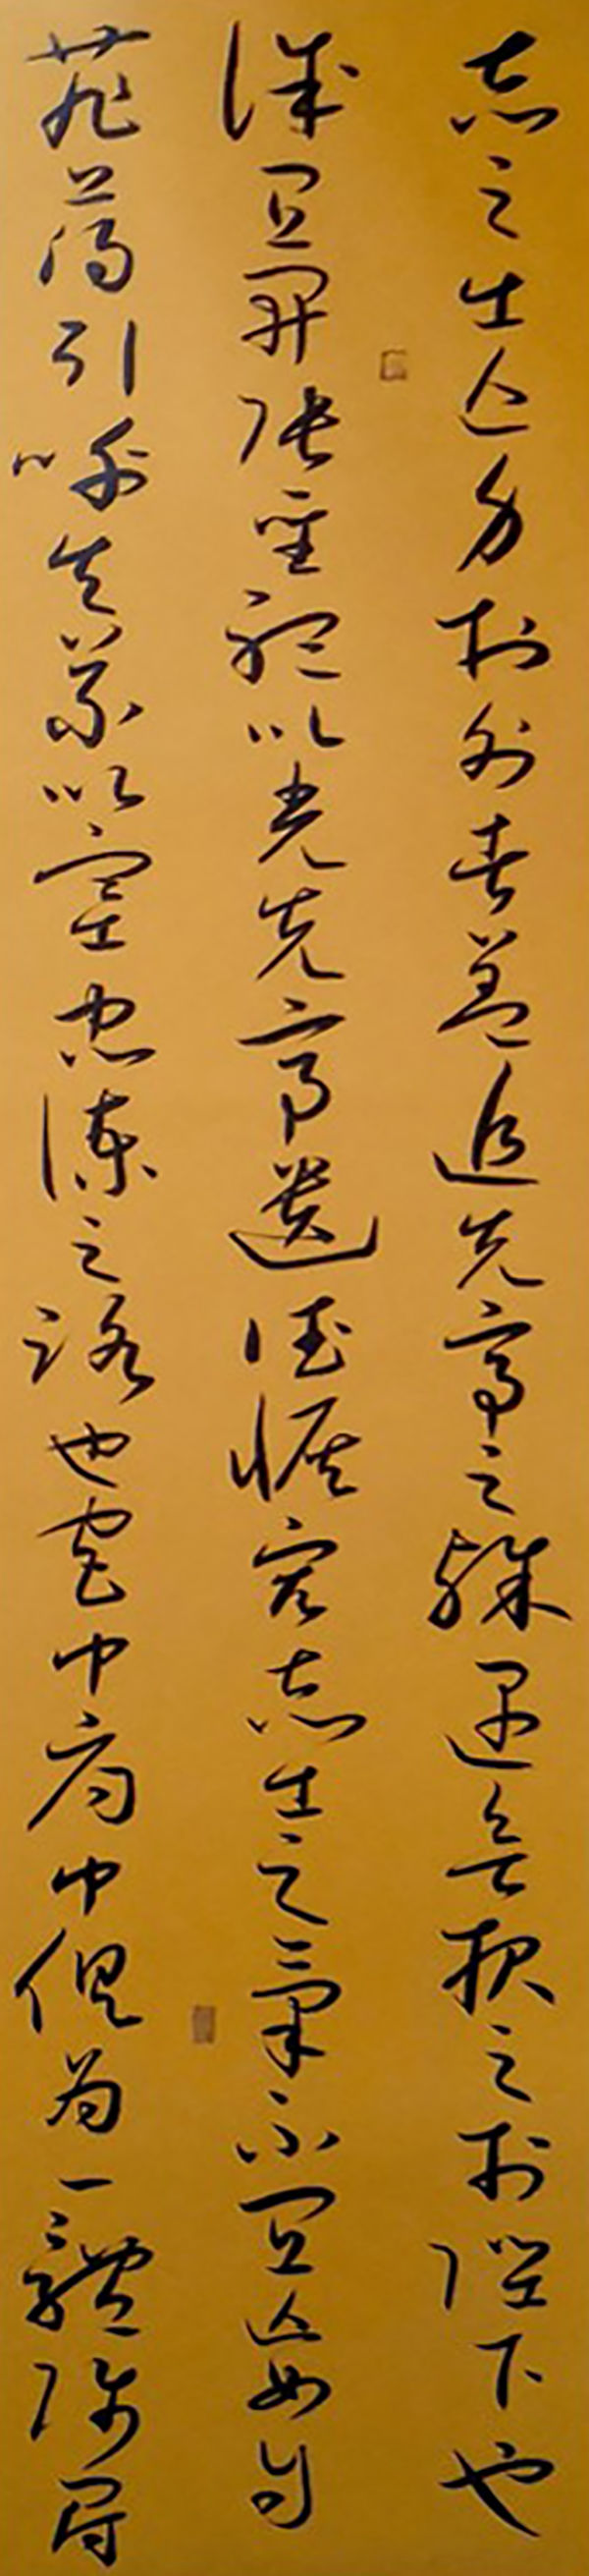 志之士亡身於外者蓋追先帝之殊遇欲報之於陛下也
誠宜開張聖聽以光先帝遺德恢宏志士之氣不宜妄自
菲薄引喻失義以塞忠諫之路也宮中府中俱為一體陟罰